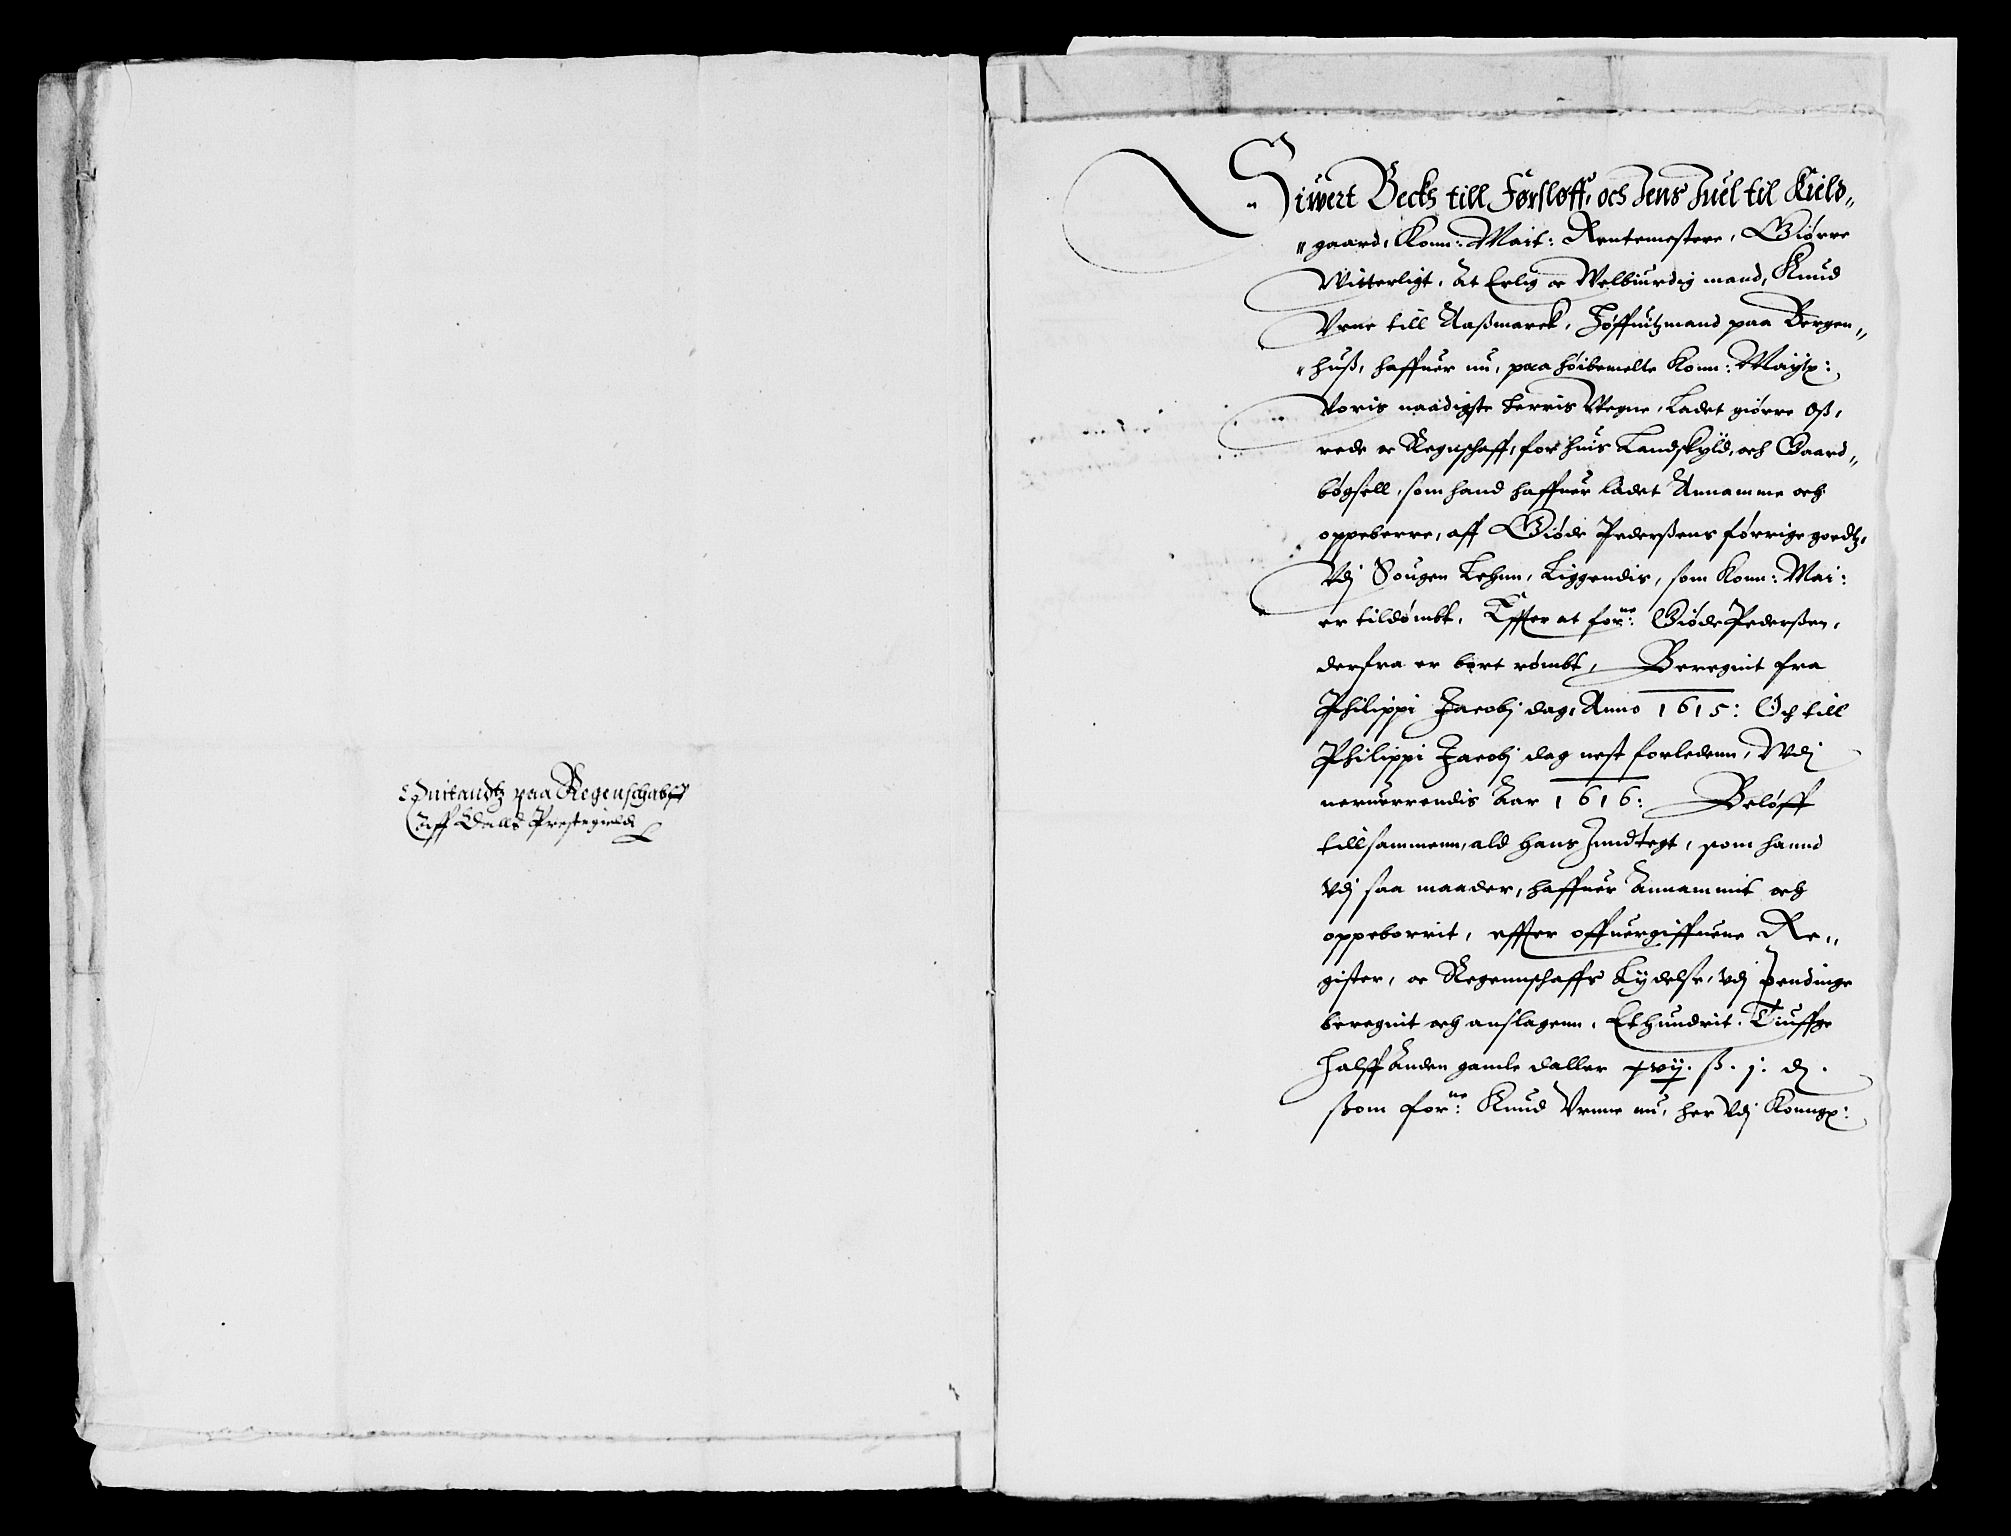 Quitandtz paa Regenschabet
Aff Dalls Prestegield
Siuert Beck till Førsløff, och Jens Juel til Kield„
„gaard, Konn: Mait: Rentemestere, Giørre
Witterligt, At Erlig oc Welbiurdig mand, Knud
Vrne till Aaßmarck, Høffuitzmand paa Bergen„
„huß, haffuer nu, paa høibemelte Konn: Maytz:
Voris naadigste herris Vegne, Ladet giørre oß,
rede oc Regnschaff, for huis Landskyld, och Gaard„
bøgsell, som hand haffuer ladet Annamme och
oppeberre, aff Giøde Pederßens førrige goedtz,
Vdj Sougen Lehnn, Liggendis, som Konn: Mai:
er tildømbt, Effter at forne: Giøde Pederßen,
derfra er bort rømbt, Beregnit fra
Philippi Jacobj dag, Anno 1615: Och till
Philippi Jacobj dag nest forledenn, Wdj
neruerrendis Aar 1616: Beløff
tillsammenn, ald hans Jndtegt, som hannd
Vdj saa maader, haffuer Annammit och
oppeborrit, effter offuergiffuene Re„
gister, oc Regennschaffs Lydelse, vdj pendinge
beregnit och anslagenn, Ethundrit, Tiuffge
halff Anden gamle daller xvij. ß. j. d.
ßom forne: Knud Vrnne nu, her Vdj Konngx: